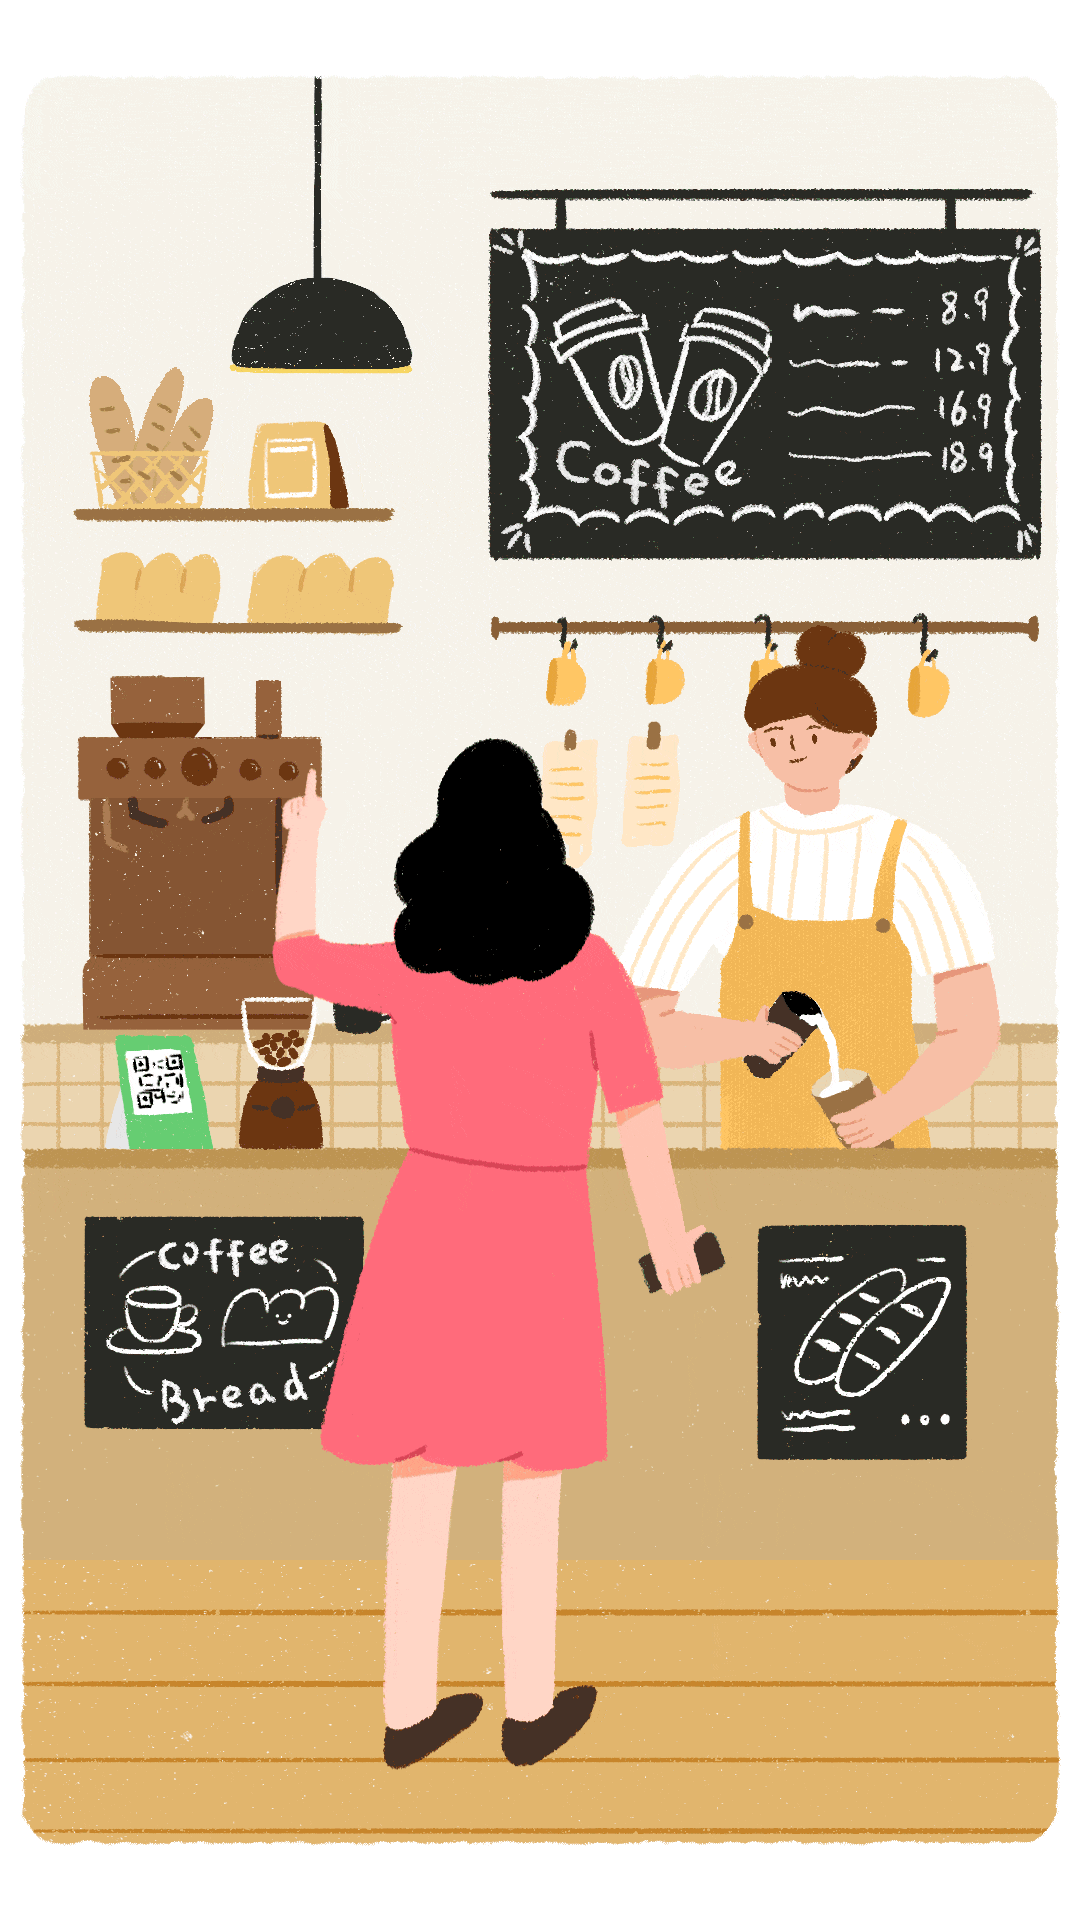 Coffee
8.9
12.9
16.9
18.9
Coffee
Bread